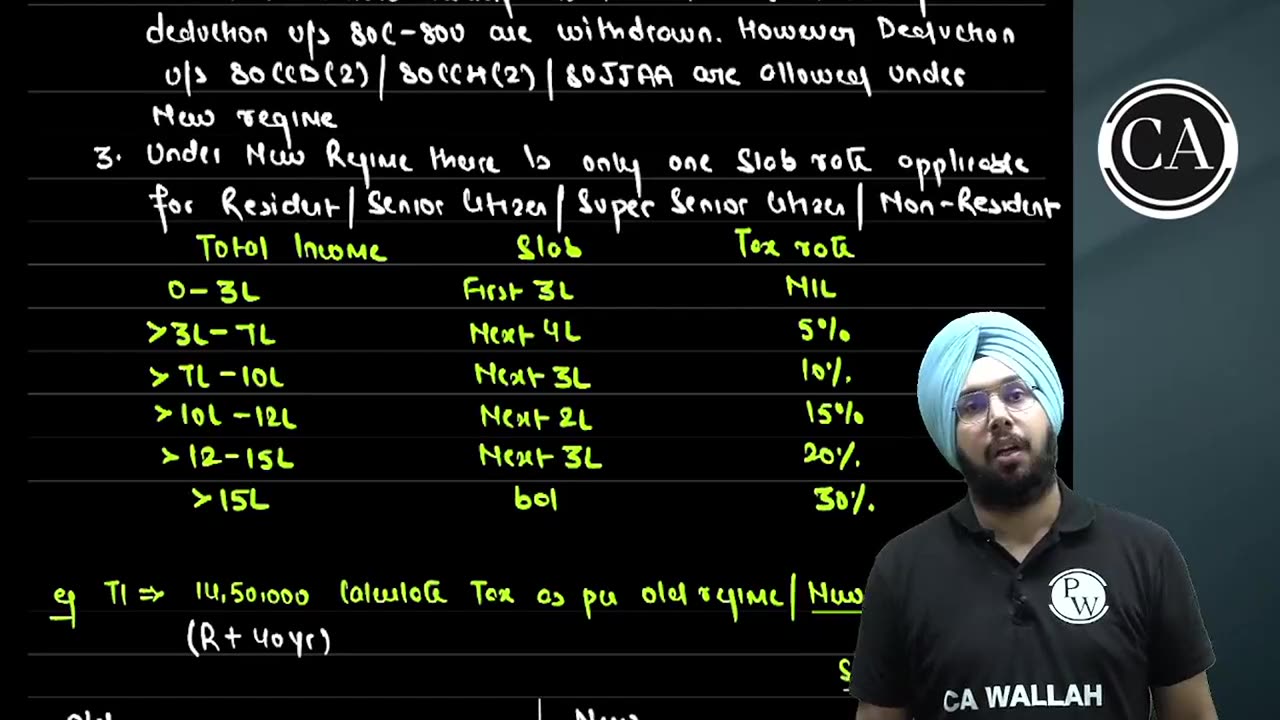 deduction u/s 80C-80U are withdrawn. However Deduction
u/s 80CCD(2) / 80CCH(2) / 80JJAA are allowed under
New regime
3. Under New Regime there is only one Slab rate applicable
for Resident / Senior Citizen / Super Senior Citizen / Non-Resident
Total Income Slab Tax rate
0-3L First 3L NIL
>3L-7L Next 4L 5%
>7L-10L Next 3L 10%.
>10L-12L Next 2L 15%
>12-15L Next 3L 20%.
>15L bal 30%.
eg TI ⇒ 14,50,000 Calculate Tax as per old regime / New
(R + 40yr)
Old New
CA
PW
CA WALLAH